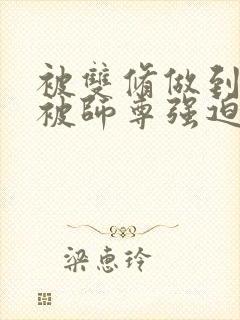 被雙脩做到
被師尊强迫
梁惠玲